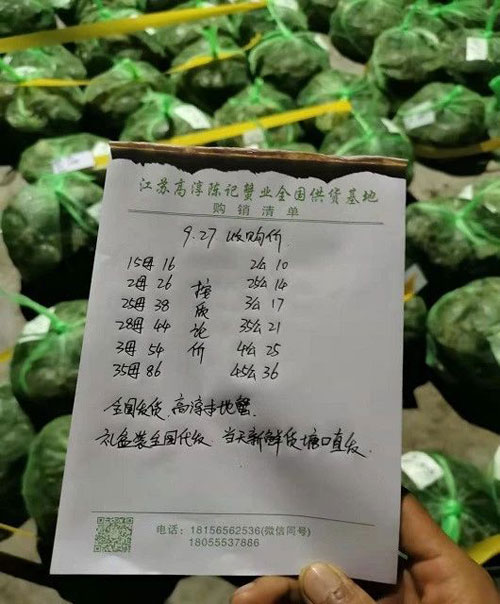 江苏高淳陈记蟹业全国供货基地
购销清单
9.27 收购价.
15母 16 2公 10
2母 26 25公 14
25母 38 3公 17
28母 44 35公 21
3母 54 4公 25
35母 86 45公 36
按质论价
全国发货.高淳本地蟹.
礼盒装全国代发. 当天新鲜货塘口直发.
电话：18156562536(微信同号)
18055537886